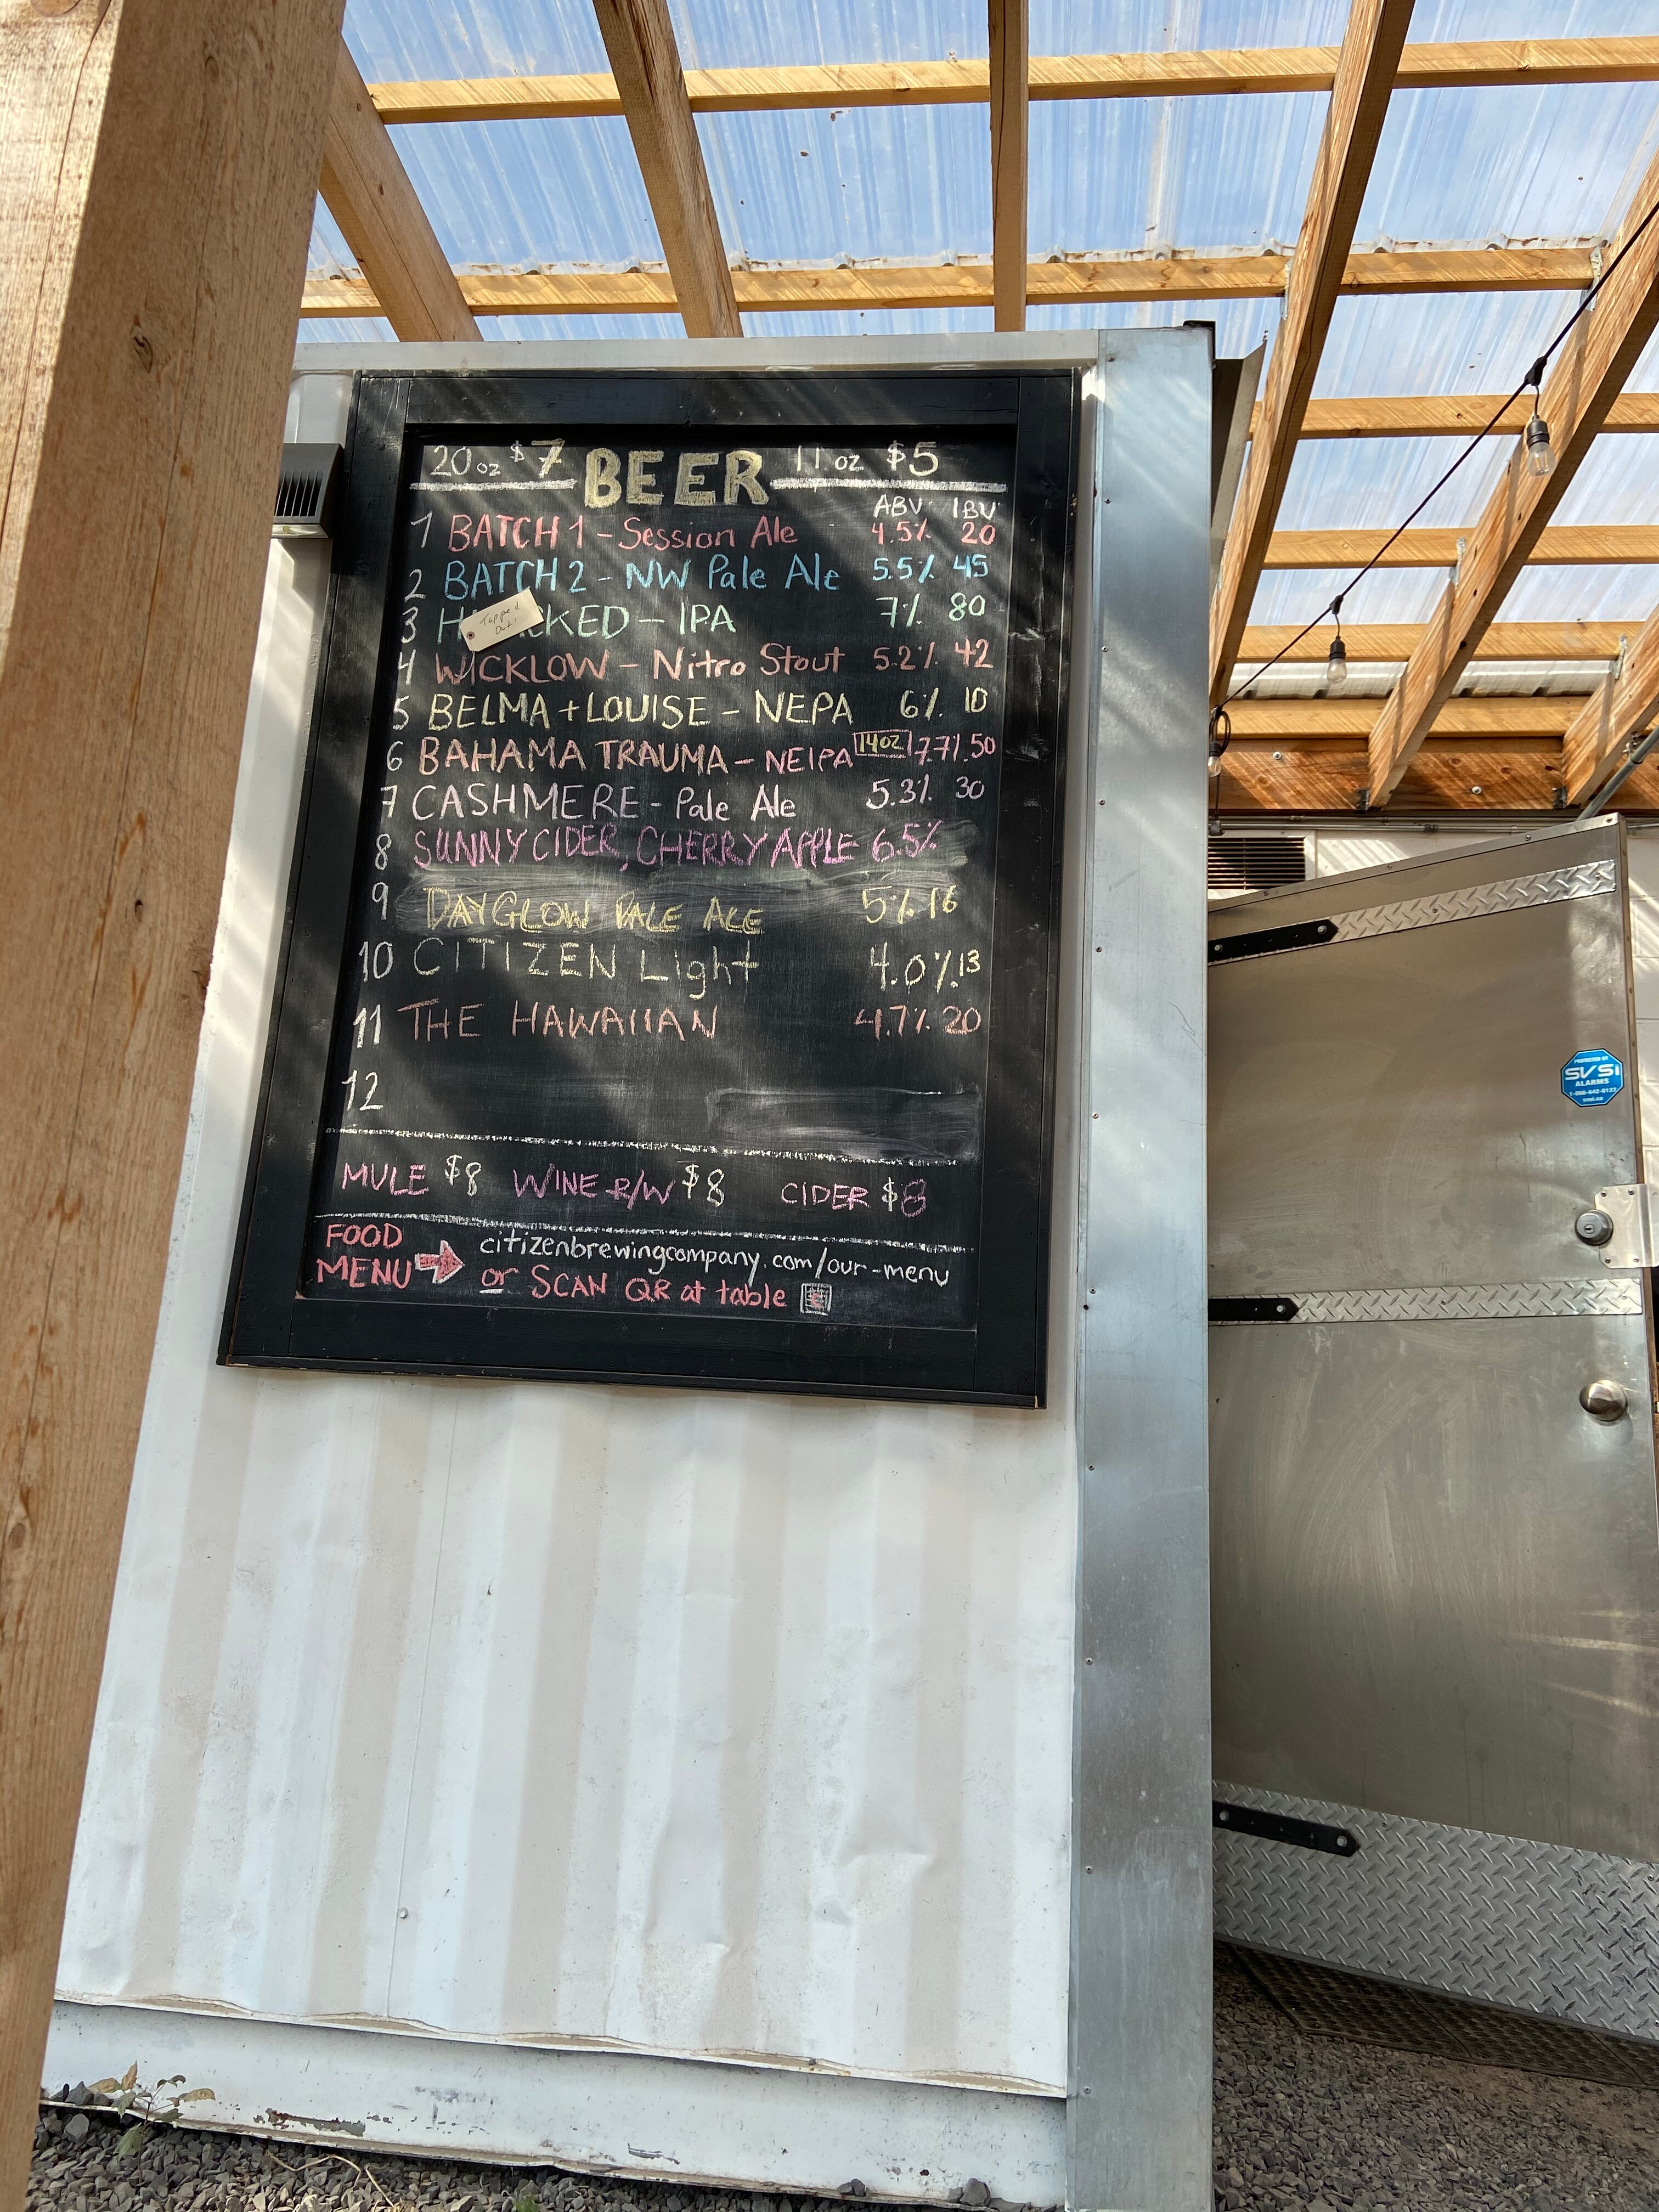 20oz $7 BEER 11oz $5
ABV IBU
1 BATCH 1 - Session Ale 4.5% 20
2 BATCH 2 - NW Pale Ale 5.5% 45
3 H KED - IPA 7% 80
Tapped
Out!
4 WICKLOW - Nitro Stout 5.2% 42
5 BELMA + LOUISE - NEPA 6% 10
6 BAHAMA TRAUMA - NEIPA 14oz 7.7% 50
7 CASHMERE - Pale Ale 5.3% 30
8 SUNNYCIDER, CHERRY APPLE 6.5%
9 DAYGLOW PALE ALE 5% 16
10 CITIZEN Light 4.0% 13
11 THE HAWAIIAN 4.7% 20
12
MULE $8 WINE R/W $8 CIDER $8
FOOD MENU → citizenbrewingcompany.com/our-menu
or SCAN QR at table
PROTECTED BY
SVSI
ALARMS
1-866-642-0137
svsi.ca